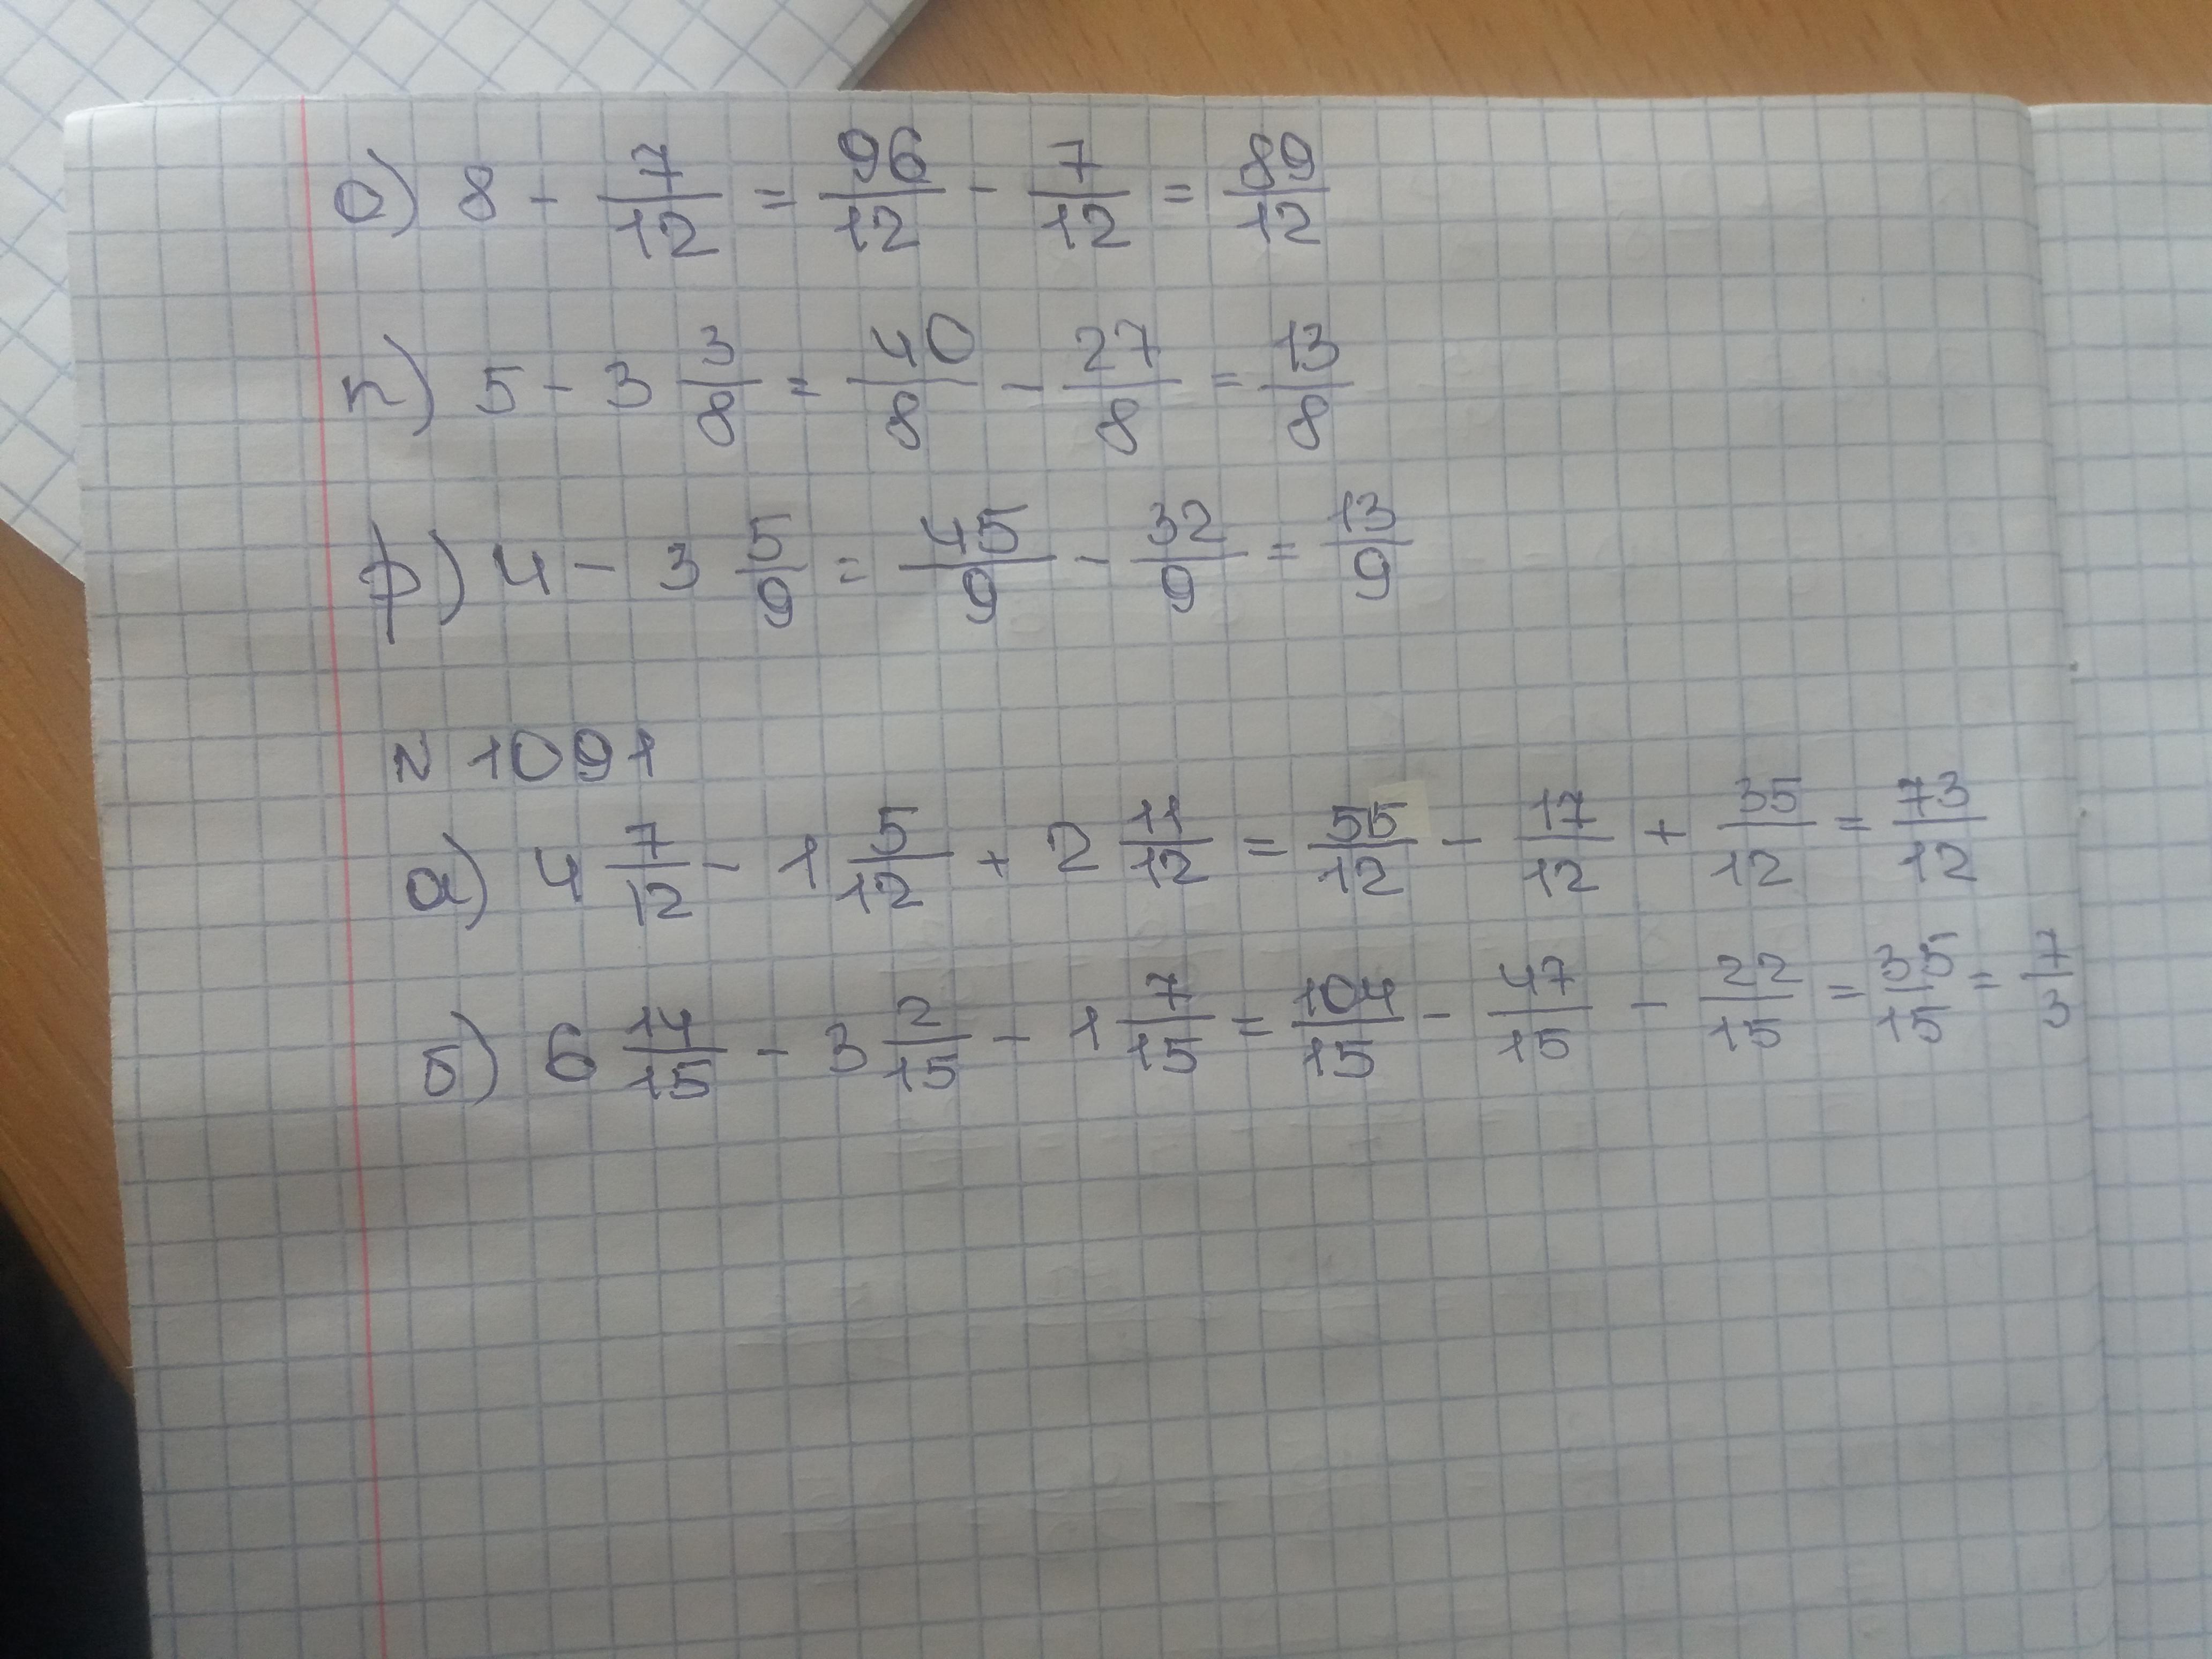 о) 8 - 7/12 = 96/12 - 7/12 = 89/12
п) 5 - 3 3/8 = 40/8 - 27/8 = 13/8
р) 4 - 3 5/9 = 45/9 - 32/9 = 13/9
N 1091
а) 4 7/12 - 1 5/12 + 2 11/12 = 55/12 - 17/12 + 35/12 = 73/12
б) 6 14/15 - 3 2/15 - 1 7/15 = 104/15 - 47/15 - 22/15 = 35/15 = 7/3